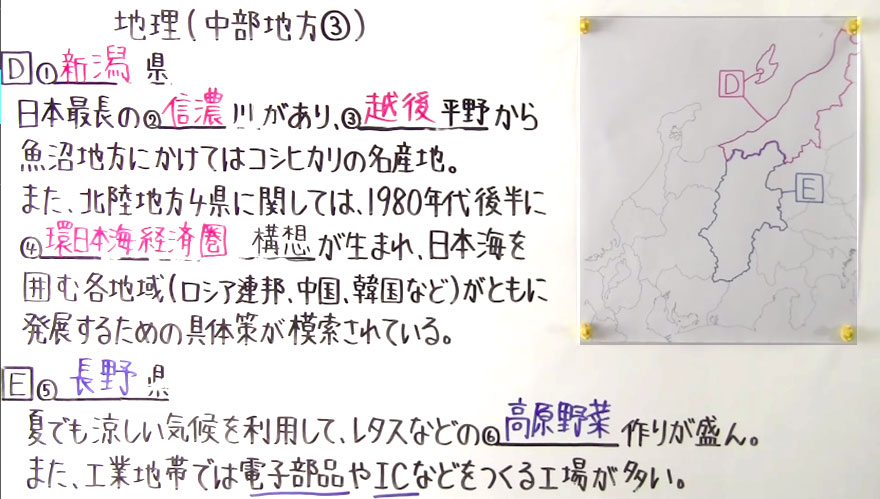 地理(中部地方③)
D ①新潟県
日本最長の②信濃川があり、③越後平野から
魚沼地方にかけてはコシヒカリの名産地。
また、北陸地方4県に関しては、1980年代後半に
④環日本海経済圏 構想が生まれ、日本海を
囲む各地域(ロシア連邦、中国、韓国など)がともに
発展するための具体策が模索されている。
E ⑤長野県
夏でも涼しい気候を利用して、レタスなどの⑥高原野菜作りが盛ん。
また、工業地帯では電子部品やICなどをつくる工場が多い。
D
E